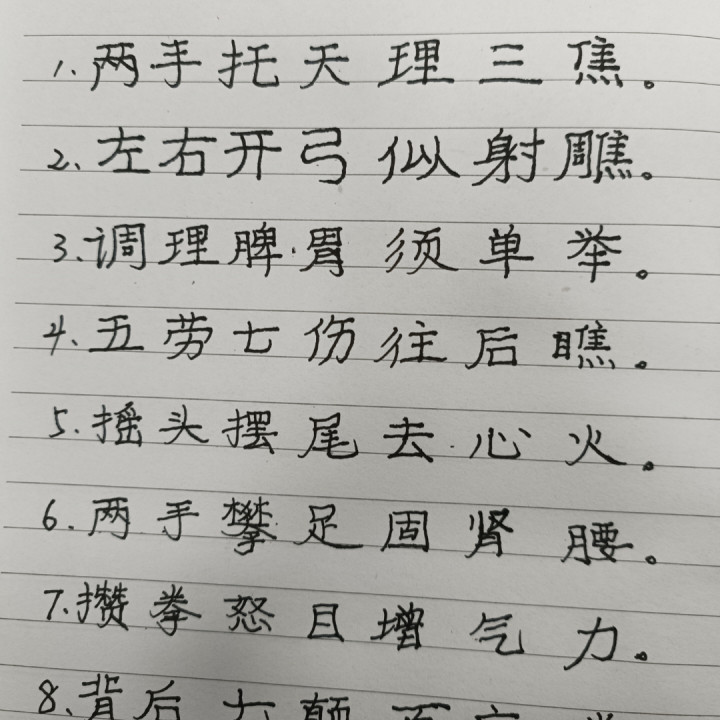 1、两手托天理三焦。
2、左右开弓似射雕。
3、调理脾胃须单举。
4、五劳七伤往后瞧。
5、摇头摆尾去心火。
6、两手攀足固肾腰。
7、攒拳怒目增气力。
8、背后七颠百